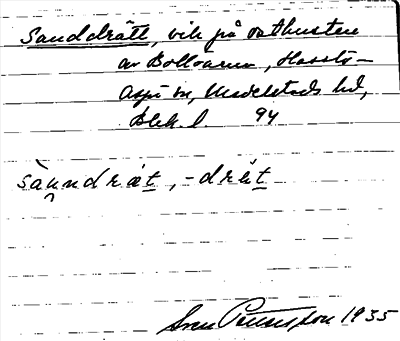 Sanddrätt, vik på östkusten
av Bollöarna, Hasslö-
Aspö sn, Medelstads hd,
Blek. l. 94
sàndrät, -drèt
Sven 1935